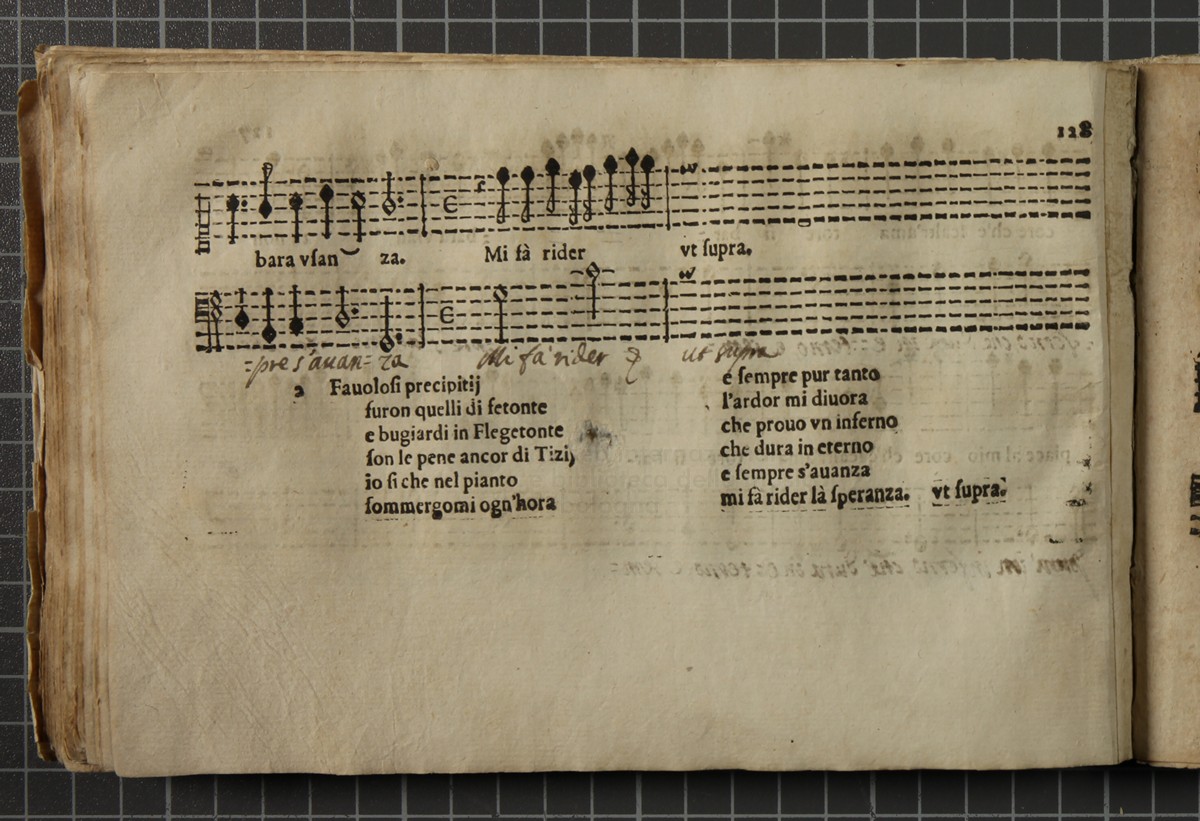 128
bara vſan za. Mi fà rider vt ſupra.
-pre s'auan-za Mi fa rider ut supra
2 Fauoloſi precipitij
furon quelli di fetonte
e bugiardi in Flegetonte
ſon le pene ancor di Tizij
io ſi che nel pianto
ſommergomi ogn'hora
e ſempre pur tanto
l'ardor mi diuora
che prouo vn inferno
che dura in eterno
e ſempre s'auanza
mi fà rider là ſperanza. vt ſupra.